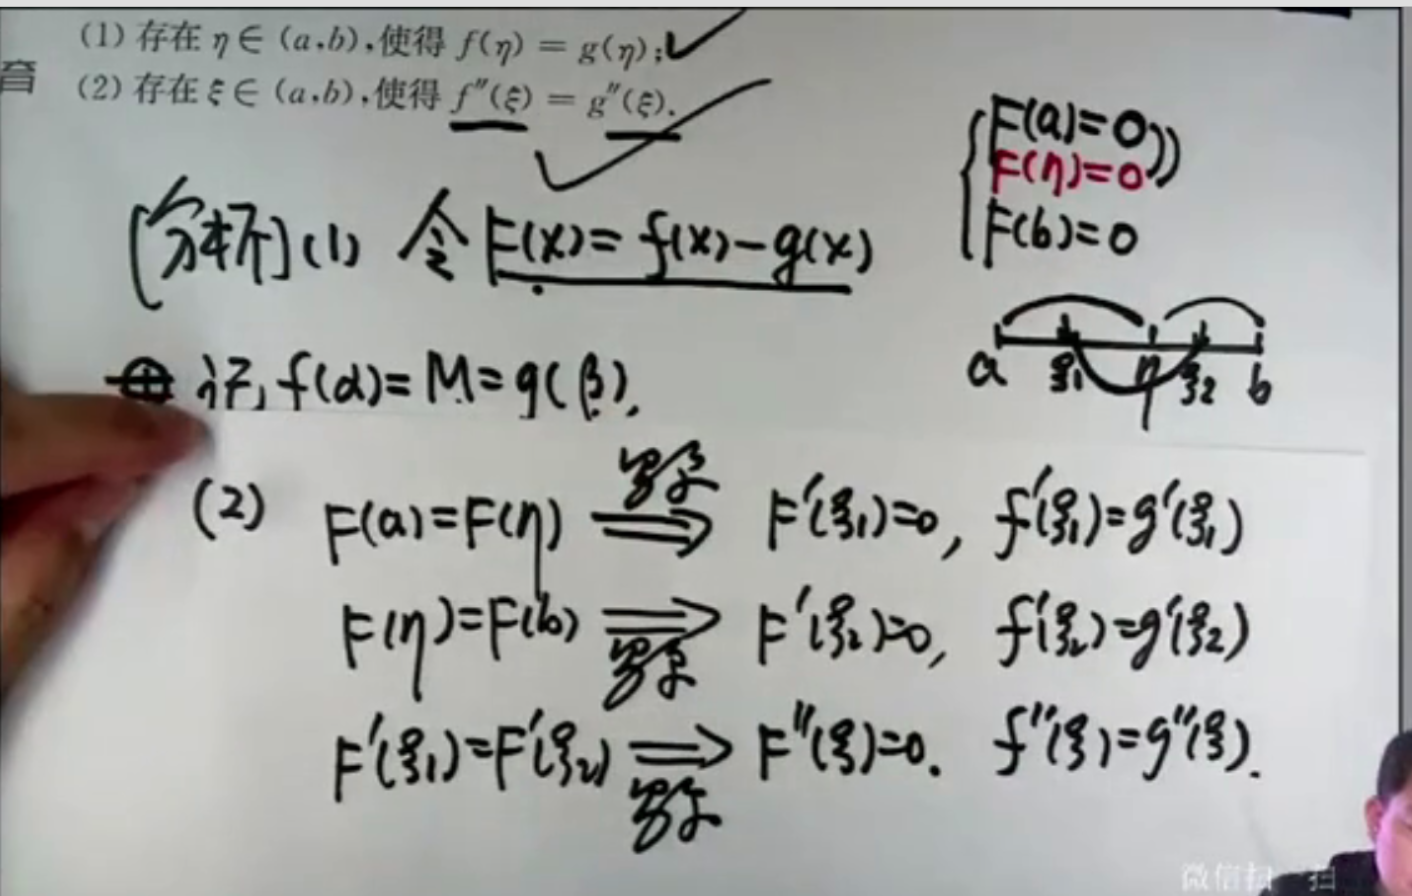 (1) 存在 η∈(a,b),使得 f(η) = g(η);
育
(2) 存在 ξ∈(a,b),使得 f″(ξ) = g″(ξ).
F(a)=0
F(η)=0
F(b)=0
[分析](1) 令 F(x)=f(x)-g(x)
a ξ1 η ξ2 b
记 f(α)=M=g(β).
(2) F(a)=F(η) 罗尔⟹ F′(ξ1)=0, f′(ξ1)=g′(ξ1)
F(η)=F(b) ⟹罗尔 F′(ξ2)=0, f′(ξ2)=g′(ξ2)
F′(ξ1)=F′(ξ2) ⟹罗尔 F″(ξ)=0. f″(ξ)=g″(ξ).
微信扫一扫